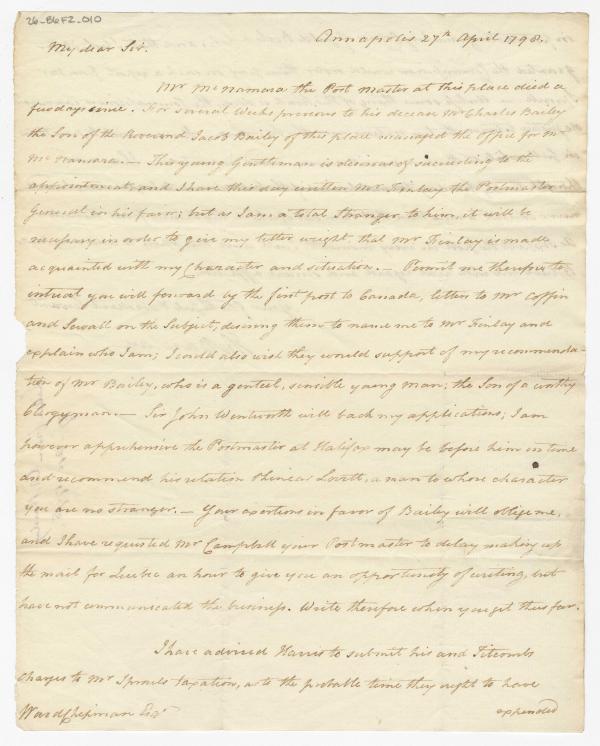 26-86F2-010
Annapolis 27th April 1798.
My dear Sir.
Mr McNamara the Post Master at this place died a
few days since. For several Weeks previous to his decease Mr Charles Bailey
the Son of the Reverend Jacob Bailey of this place managed the office for Mr
McNamara. — This young Gentleman is desirous of succeeding to the
appointment, and I have this day written Mr Finlay the Postmaster
General in his favor; but as I am a total Stranger to him, it will be
necessary in order to give my letter weight, that Mr Finlay is made
acquainted with my Character and situation. — Permit me therefore to
intreat you will forward by the first post to Canada, letters to Mr Coffin
and Sewall on the Subject, desiring them to name me to Mr Finlay and
explain who I am; I could also wish they would support of my recommenda-
tion of Mr Bailey, who is a genteel, sensible young man; the Son of a worthy
Clergyman. — Sir John Wentworth will back my applications; I am
however apprehensive the Postmaster at Halifax may be before him in time
and recommend his relation Phineas Lovett, a man to whose character
you are no stranger. — Your exertions in favor of Bailey will oblige me,
and I have requested Mr Campbell your Postmaster to delay making up
the mail for Quebec an hour to give you an opportunity of writing, but
have not communicated the business. Write therefore when you get thus far.
I have advised Harris to submit his and Titcombs
Charges to Mr Sprouls taxation, as to the probable time they ought to have
Ward Chipman Esqr
expended